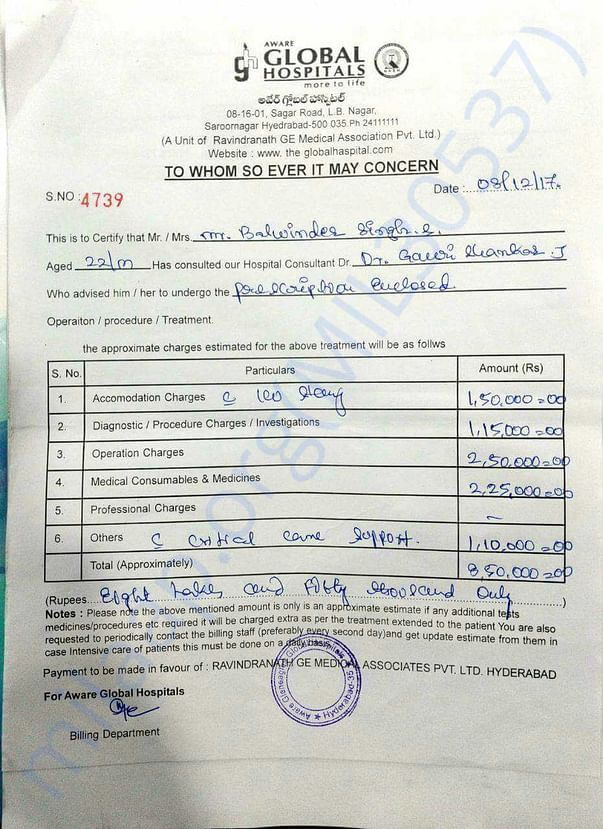 AWARE
gh GLOBAL
HOSPITALS
more to life
అవేర్ గ్లోబల్ హాస్పిటల్
08-16-01, Sagar Road, L.B. Nagar,
Saroornagar Hyedrabad-500 035.Ph 24111111
(A Unit of Ravindranath GE Medical Association Pvt. Ltd.)
Website : www. the globalhospital.com
TO WHOM SO EVER IT MAY CONCERN
S.NO : 4739
Date : 08/12/17.
This is to Certify that Mr. / Mrs. Mr. Balwinder Singh. S.
Aged 22/m Has consulted our Hospital Consultant Dr. Dr. Gauri Shankar J
Who advised him / her to undergo the prescription Enclosed
Operaiton / procedure / Treatment.
the approximate charges estimated for the above treatment will be as follws
S. No. Particulars Amount (Rs)
1. Accomodation Charges c ICU Stay 1,50,000=00
2. Diagnostic / Procedure Charges / Investigations 1,15,000=00
3. Operation Charges 2,50,000=00
4. Medical Consumables & Medicines 2,25,000=00
5. Professional Charges –
6. Others c critical care support. 1,10,000=00
Total (Approximately) 8,50,000=00
(Rupees Eight Lakes and Fifty thousand only)
Notes : Please note the above mentioned amount is only is an approximate estimate if any additional tests
medicines/procedures etc required it will be charged extra as per the treatment extended to the patient You are also
requested to periodically contact the billing staff (preferably every second day)and get update estimate from them in
case Intensive care of patients this must be done on a daily basis.
Payment to be made in favour of : RAVINDRANATH GE MEDICAL ASSOCIATES PVT. LTD. HYDERABAD
For Aware Global Hospitals
Billing Department